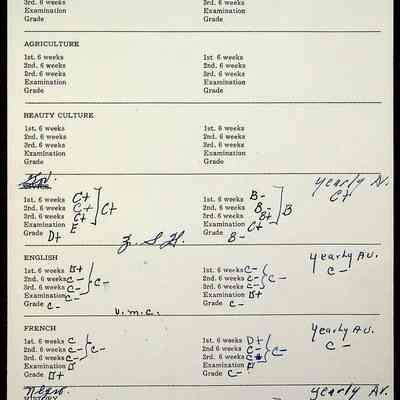 3rd. 6 weeks 3rd. 6 weeks
Examination Examination
Grade Grade
AGRICULTURE
1st. 6 weeks 1st 6 weeks
2nd. 6 weeks 2nd. 6 weeks
2rd. 6 weeks 3rd. 6 weeks
Examination Examination
Grade Grade
BEAUTY CULTURE
1st. 6 weeks 1st. 6 weeks
2nd. 6 weeks 2nd. 6 weeks
3rd. 6 weeks 3rd. 6 weeks
Examination Examination
Grade Grade
yearly Av.
C+
1st. 6 weeks C+ 1st. 6 weeks B-
2nd. 6 weeks C+ C+ 2nd. 6 weeks B- B
3rd. 6 weeks C+ 3rd. 6 weeks B+
Examination E Examination C+
Grade D+ Grade B-
Z. S. H.
ENGLISH yearly Av.
C-
1st. 6 weeks D+ 1st. 6 weeks C-
2nd. 6 weeks C- C- 2nd. 6 weeks C- C-
3rd. 6 weeks C- 3rd. 6 weeks C-
Examination C- Examination D+
Grade C- Grade C-
V.M.C.
FRENCH yearly Av.
C-
1st. 6 weeks C 1st. 6 weeks D+
2nd. 6 weeks C- C- 2nd 6 weeks C- C-
3rd. 6 weeks C- 3rd. 6 weeks
Examination D Examination D
Grade D+ Grade C-
Negro yearly Av.
HISTORY